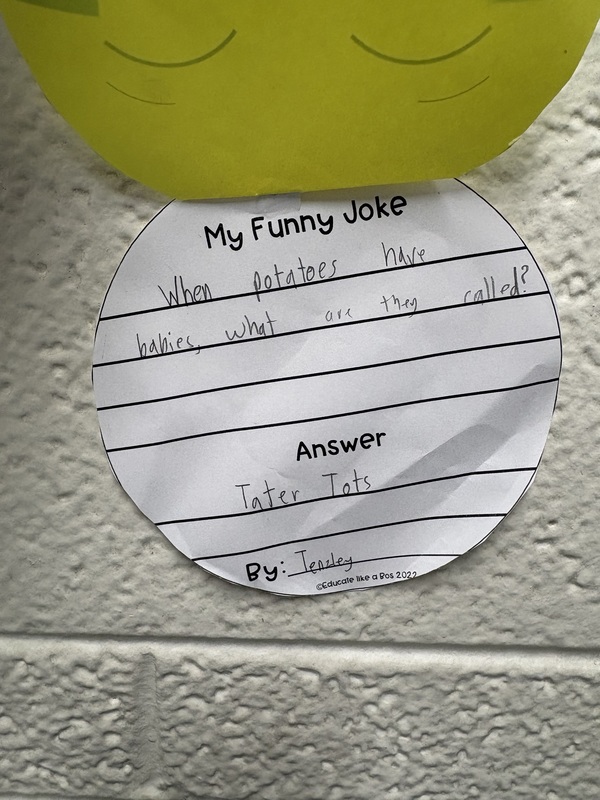 My Funny Joke
When potatoes have
babies, what are they called?
Answer
Tater Tots
By: Tenzley
©Educate like a Bos 2022